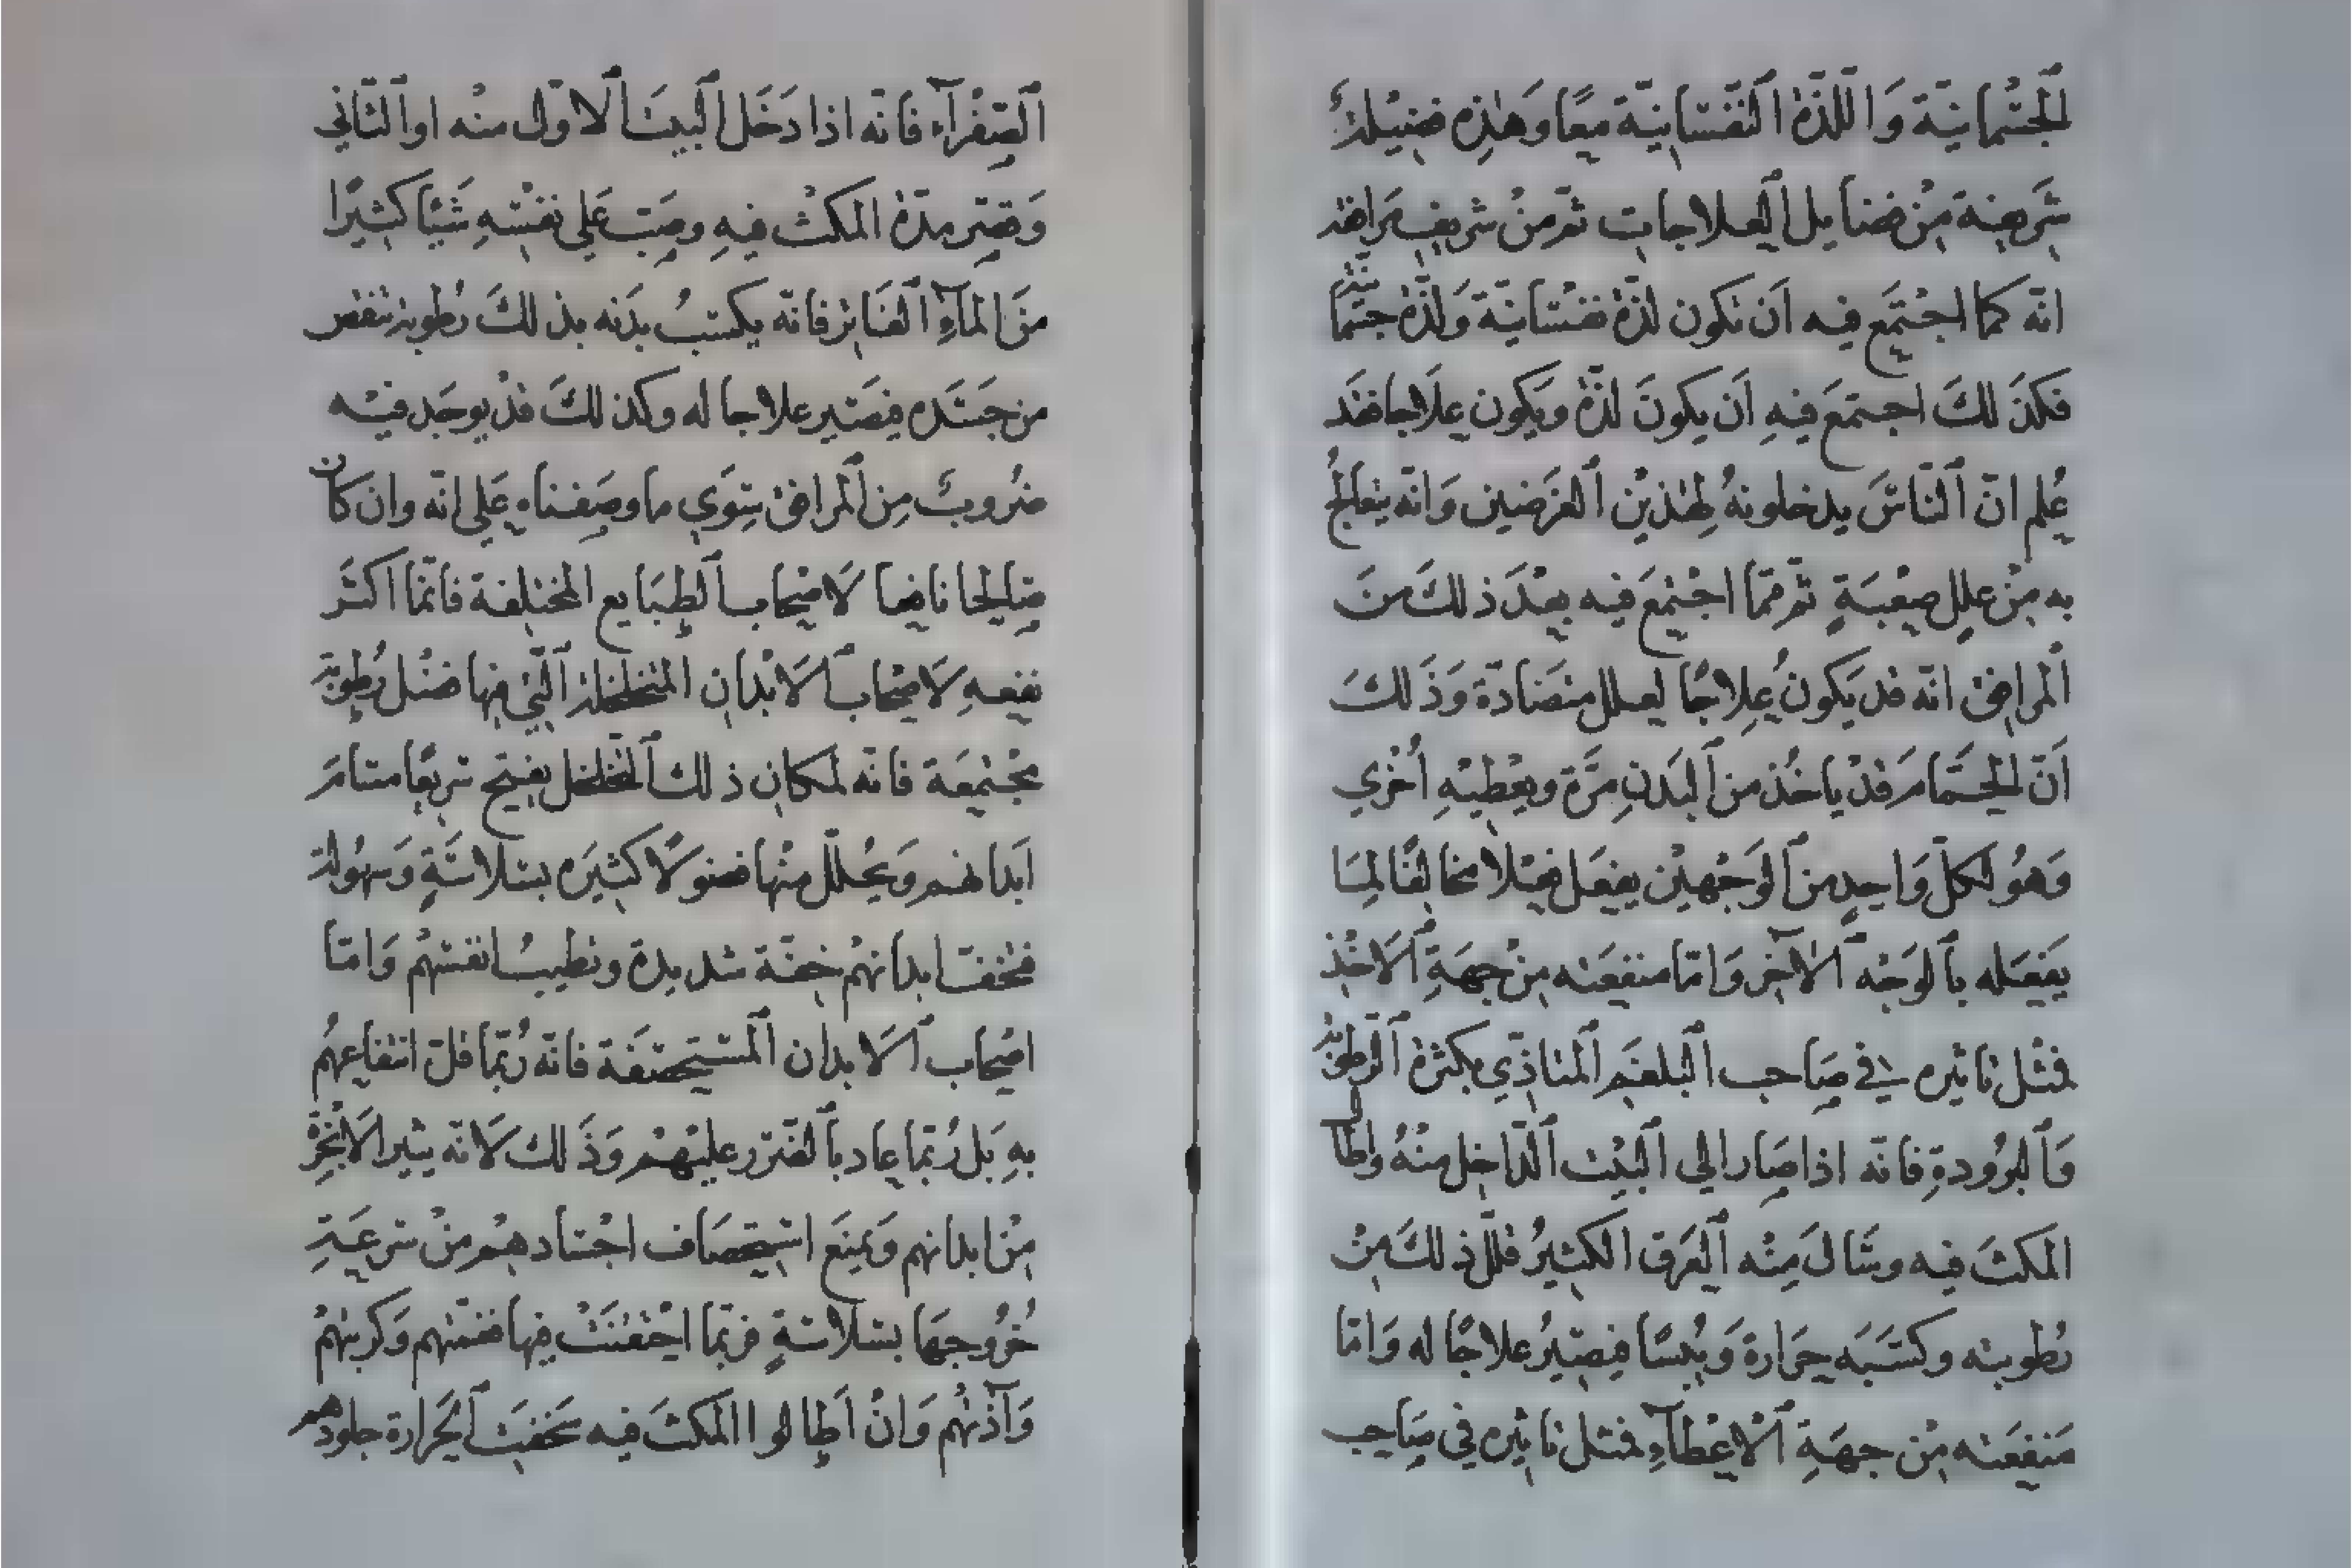 الجسْمانيّة وَاللّذّة النّفْسانيّة معًا وَهٰذِه فضيْلة
شَريفة مِنْ فضايل العِلاجات ثمّ مِنْ شريف مَرافقه
انّه كما اجْتمَع فيه اَن تكون لذّة نفْسانيّة وَلذّة جسْمانيّة
فكذَلكَ اجتمَعَ فيهِ اَن يكونَ لذّة ويَكون عِلَاجا فقَد
عُلم انّ النّاسَ يدخلونهُ لِهٰذيْن الغرَضين وَانّه يتعالَجُ
به مِنْ عِللٍ صعْبَةٍ ثمّ ممّا اجْتمعَ فيه بعْدَ ذلكَ منَ
المرافق انّه قد يَكونُ عِلاجًا لعلل متضَادّة وَذَلكَ
اَنّ الحَمّامَ قدْ ياخُذ من البَدنِ مرّة ويعْطيْهِ اُخْري
وَهوُ لكلّ وَاحدٍ من الوَجْهيْن يفعَل فعْلا مخالفًا لِمَا
يَفعَله بالوَجْه الاٰخر وَامّا منفعَته مِنْ جهَةِ الاَخْذ
فمثْل تاثيره في صَاحب البلغَم المتاذّي بكثرة الرّطوُبة
وَالبرُودةِ فانّه اذا صَار الي البَيْت الدّاخل منْهُ واطال
المكثَ فيه وسَالَ مِنْه العَرَق الكثيرُ قلّل ذلكَ مِنْ
رُطوبته وكسَبَه حَرارة وَيُبْسًا فيصَيرُ علاجًا له وَامّا
مَنفعَته مِنْ جهَةِ الاْعْطآءِ فمثل تاثيره في صَاحِب
الصّفْرآء فانّه اذا دَخَل البيتَ الاوّل منْه او الثّاني
وَقصّر مدّة المكْث فيهِ وصَبّ عَلي نفسْهِ شَيْئا كثيرًا
منَ المآءِ الفَاتر فانّه يكتسبُ بدَنه بذلكَ رُطوبة تنفض
من جسَدَه فيصَير علاجا له وكذلكَ قدْ يوجَد فيْه
ضرُوبٌ مِن المرافق سِوَي ما وصَفناه عَلي انّه وان كان
صَالحا نافعا لَاصْحاب الطبَايع المختلفة فانّما اكثَر
نفعهِ لَاصْحاب الاَبْدان المتخلخلة الّتي فيها فضْل رُطوبَة
مجْتمعَة فانّه لمكان ذلكَ التّخلخل يفتح سَريعًا مسَامَ
اَبدانهم وَيحُلّل منْها فضوَلًا كثيَره بسَلَاسَةٍ وَسهُولة
فتخفّ ابدانهمْ خفّة شديدة وتطيبُ انفسُهمْ وَامّا
اصْحاب الاَبدان المسْتحصفَة فانّه رُبّما قلّ انتفاعهمُ
بهِ بَل رُبّما عاد بالضّرر عليْهمْ وَذَلك لَانّه يثير الاَبْخرة
مِنْ ابدانهم وَيمنَع استحصَاف اجْسَادهمْ منْ سرعَةِ
خرُوجهَا بسَلاسَةٍ فربّما احْتقنَتْ فيها فغمّتهم وَكربتهمْ
وَآذتْهُم وَانْ اَطالوا المكثَ فيه سَخّفتَ الحَرارة جلودهم